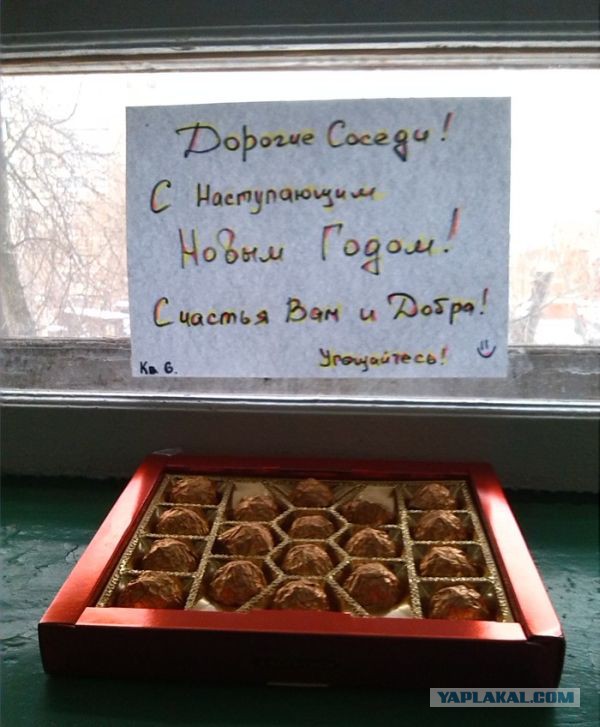 Дорогие Соседи!
С Наступающим
Новым Годом!
Счастья Вам и Добра!
Угощайтесь!
Кв 6.
YAPLAKAL.COM